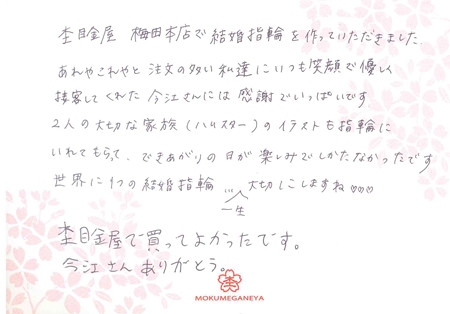 杢目金屋 梅田本店で結婚指輪を作っていただきました。
あれやこれやと注文の多い私達にいつも笑顔で優しく
接客してくれた今江さんには感謝でいっぱいです
2人の大切な家族(ハムスター)のイラストも指輪に
いれてもらって、できあがりの日が楽しみでしかたなかったです
世界に1つの結婚指輪…大切にしますね♡♡♡
一生
杢目金屋で買ってよかったです。
今江さんありがとう。
MOKUMEGANEYA